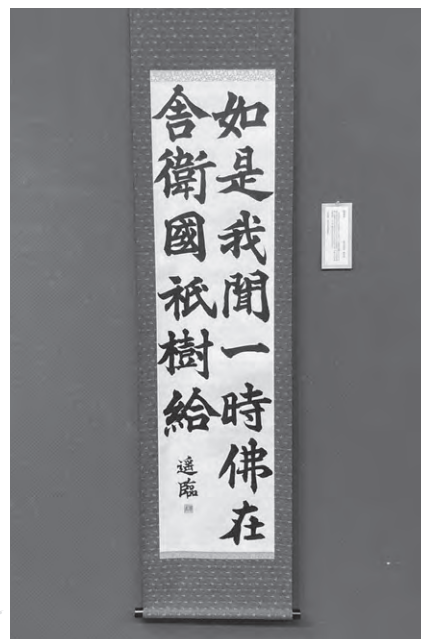 如是我聞一時佛在
舎衛國祇樹給
遥臨